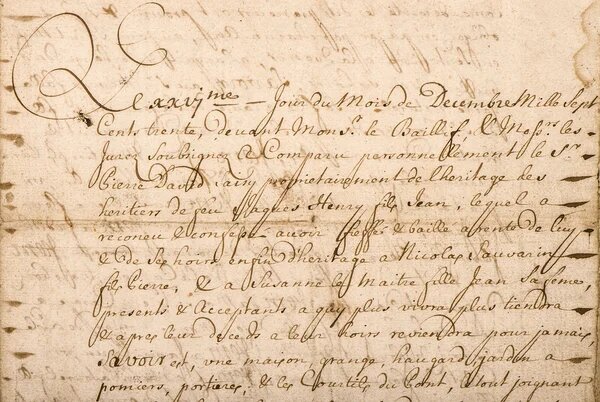 Le xxvj me Jour du Mois de Decembre Mille Sept
Cents trente, devant Mons.r le Baillif & Mess.rs les
Jurez Soubsignez A Comparu personnellement le S.r
Pierre David proprietairement de l'heritage des
heritiers de feu Jaques Henry fils Jean, lequel a
reconeu & confessé avoir fieffé & baillé a rente de luy
& de Ses hoirs en fin d'heritage a Nicolas Sauvarin
fils Pierre, & a Susanne le Maitre fille Jean Sa feme,
presents & Acceptants a quy plus vivra plus tiendra
& apres leur deceds a leur hoirs reviendra pour jamais,
Savoir est, une maison, grange, haugard, jardin a
pomiers, portieres, & les Courtils du Pont, & tout joignant